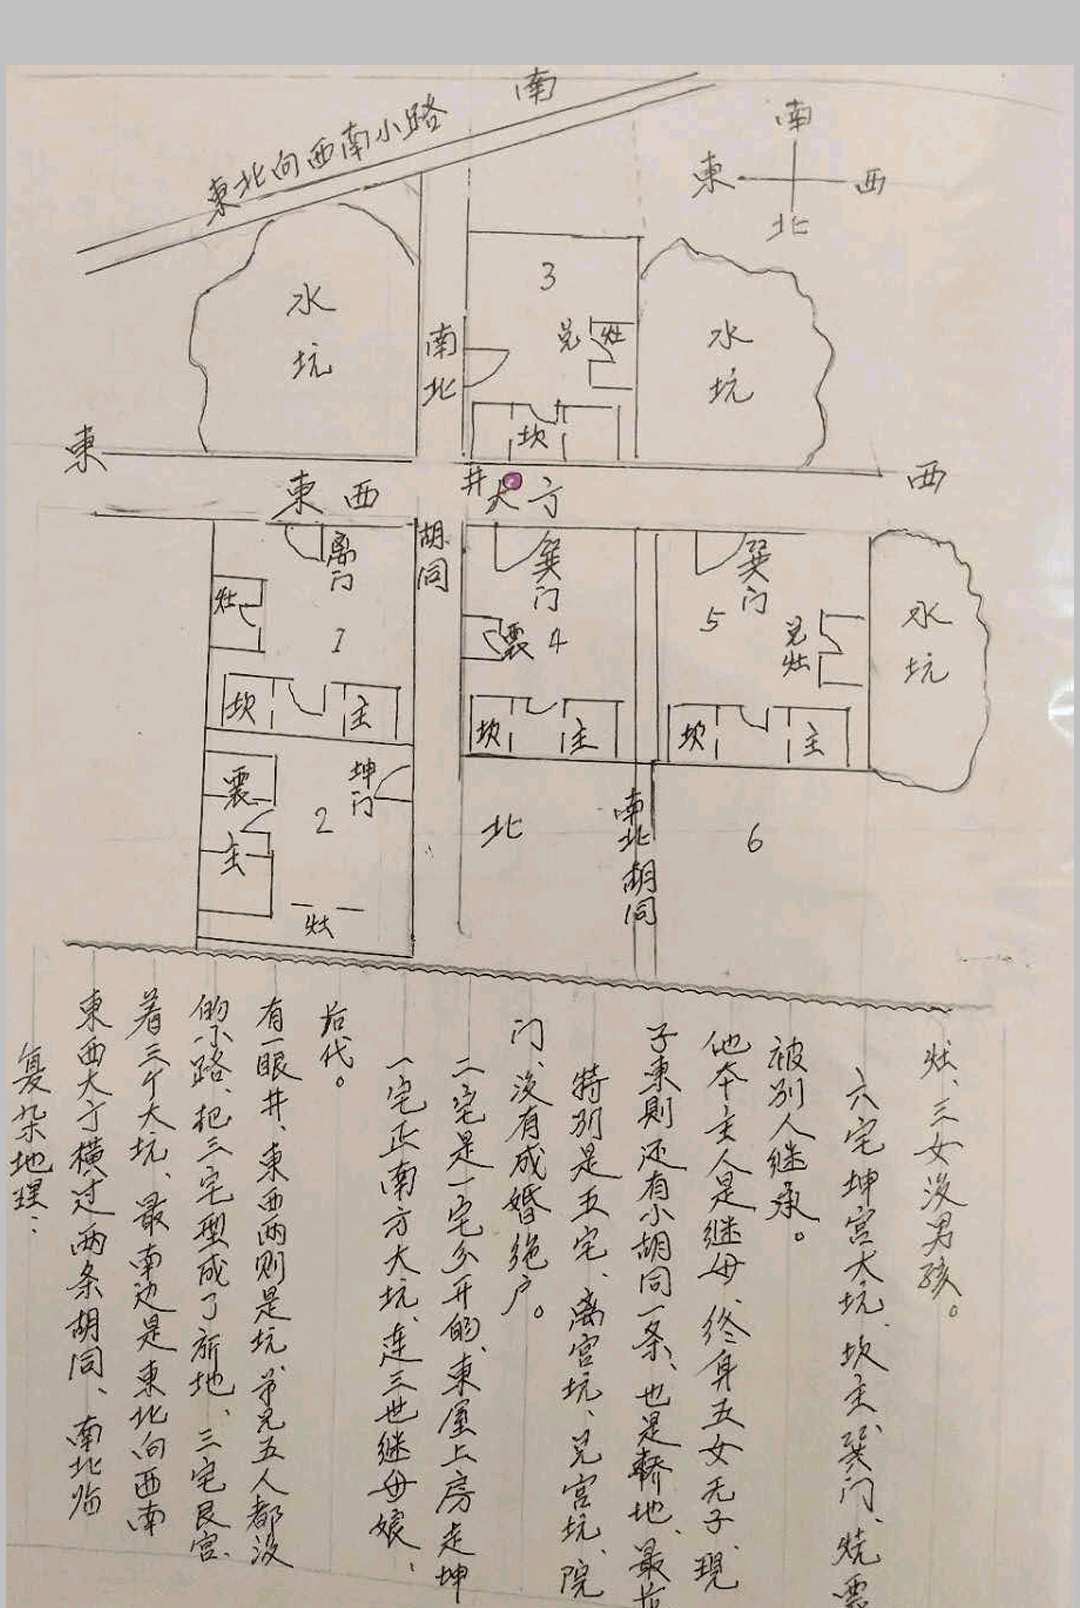 南
東北向西南小路
南
東
西
北
水
坑
南北
3
兑
灶
坎
水
坑
東
東西
井
大亍
西
胡同
离门
灶
1
坎
主
巽门
震
4
坎
主
巽门
5
兑灶
坎
主
水
坑
震
主
坤门
2
灶
北
南北胡同
6
复杂地理：
東西大亍横过两条胡同、南北临
着三个大坑、最南边是東北向西南
的小路、把三宅型成了斻地、三宅艮宫、
有一眼井、東西两则是坑、弟兄五人都没
后代。
一宅正南方大坑、连三世继母娘、
二宅是一宅分开的、東屋上房走坤
门、没有成婚绝户。
特别是五宅、离宫坑、兑宫坑、院
子東則还有小胡同一条、也是轿地、最后
他本主人是继母、终身五女无子、現
被别人继承。
六宅坤宫大坑、坎主巽门、烧震
灶、三女没男孩。